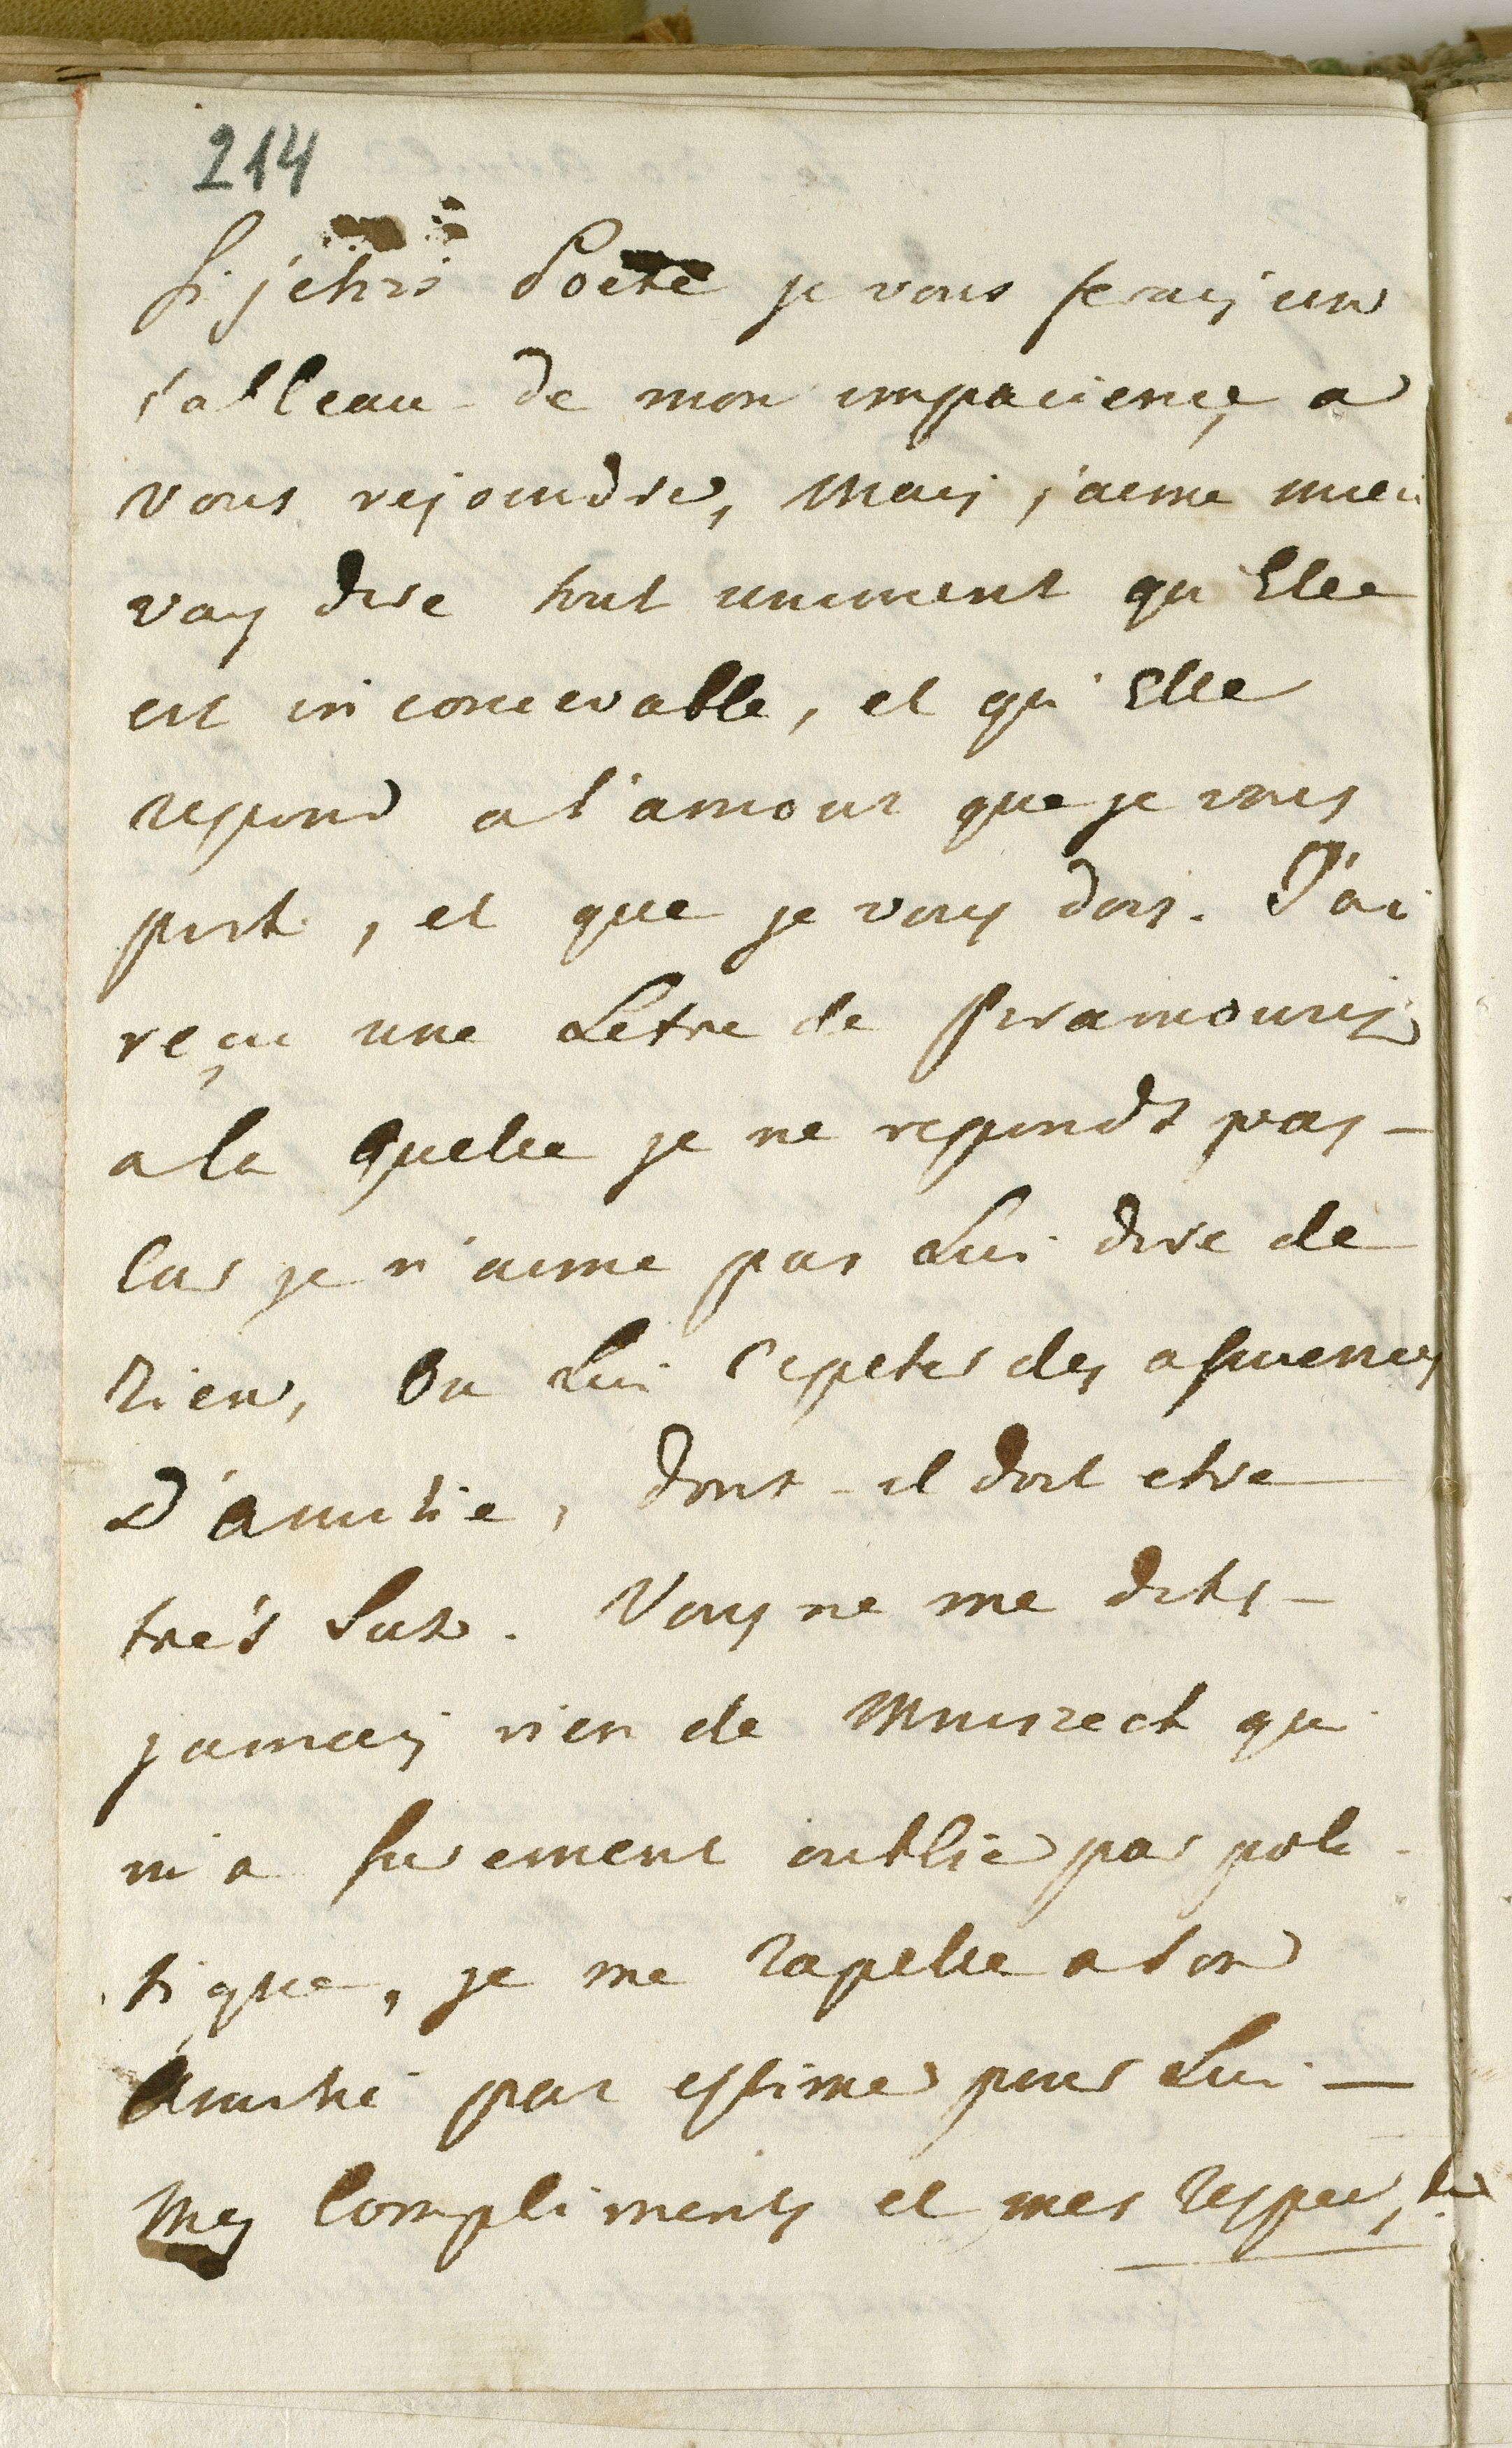 214
Si j'etois Poete je vous feray un
tableau de mon impacience a
vous rejoindre, Mais j'aime mieu
vous dire tout uniment qu'Elle
est inconcevable, et qu'Elle
respond a l'amour que je vous
porte, et que je vous dois. J'ai
reçu une Letre de
a la quelle je ne responds pas –
Car je n'aime pas Lui dire de
Rien, Ou Lui repeter des assurences
D'amitie, dont il doit etre
tres Sur. Vous ne me dites –
jamais rien de qui
m'a surement oublie par poli
tique, je me rapelle a son
Amitie par estime pour Lui —
Mes Compliments et mes respec